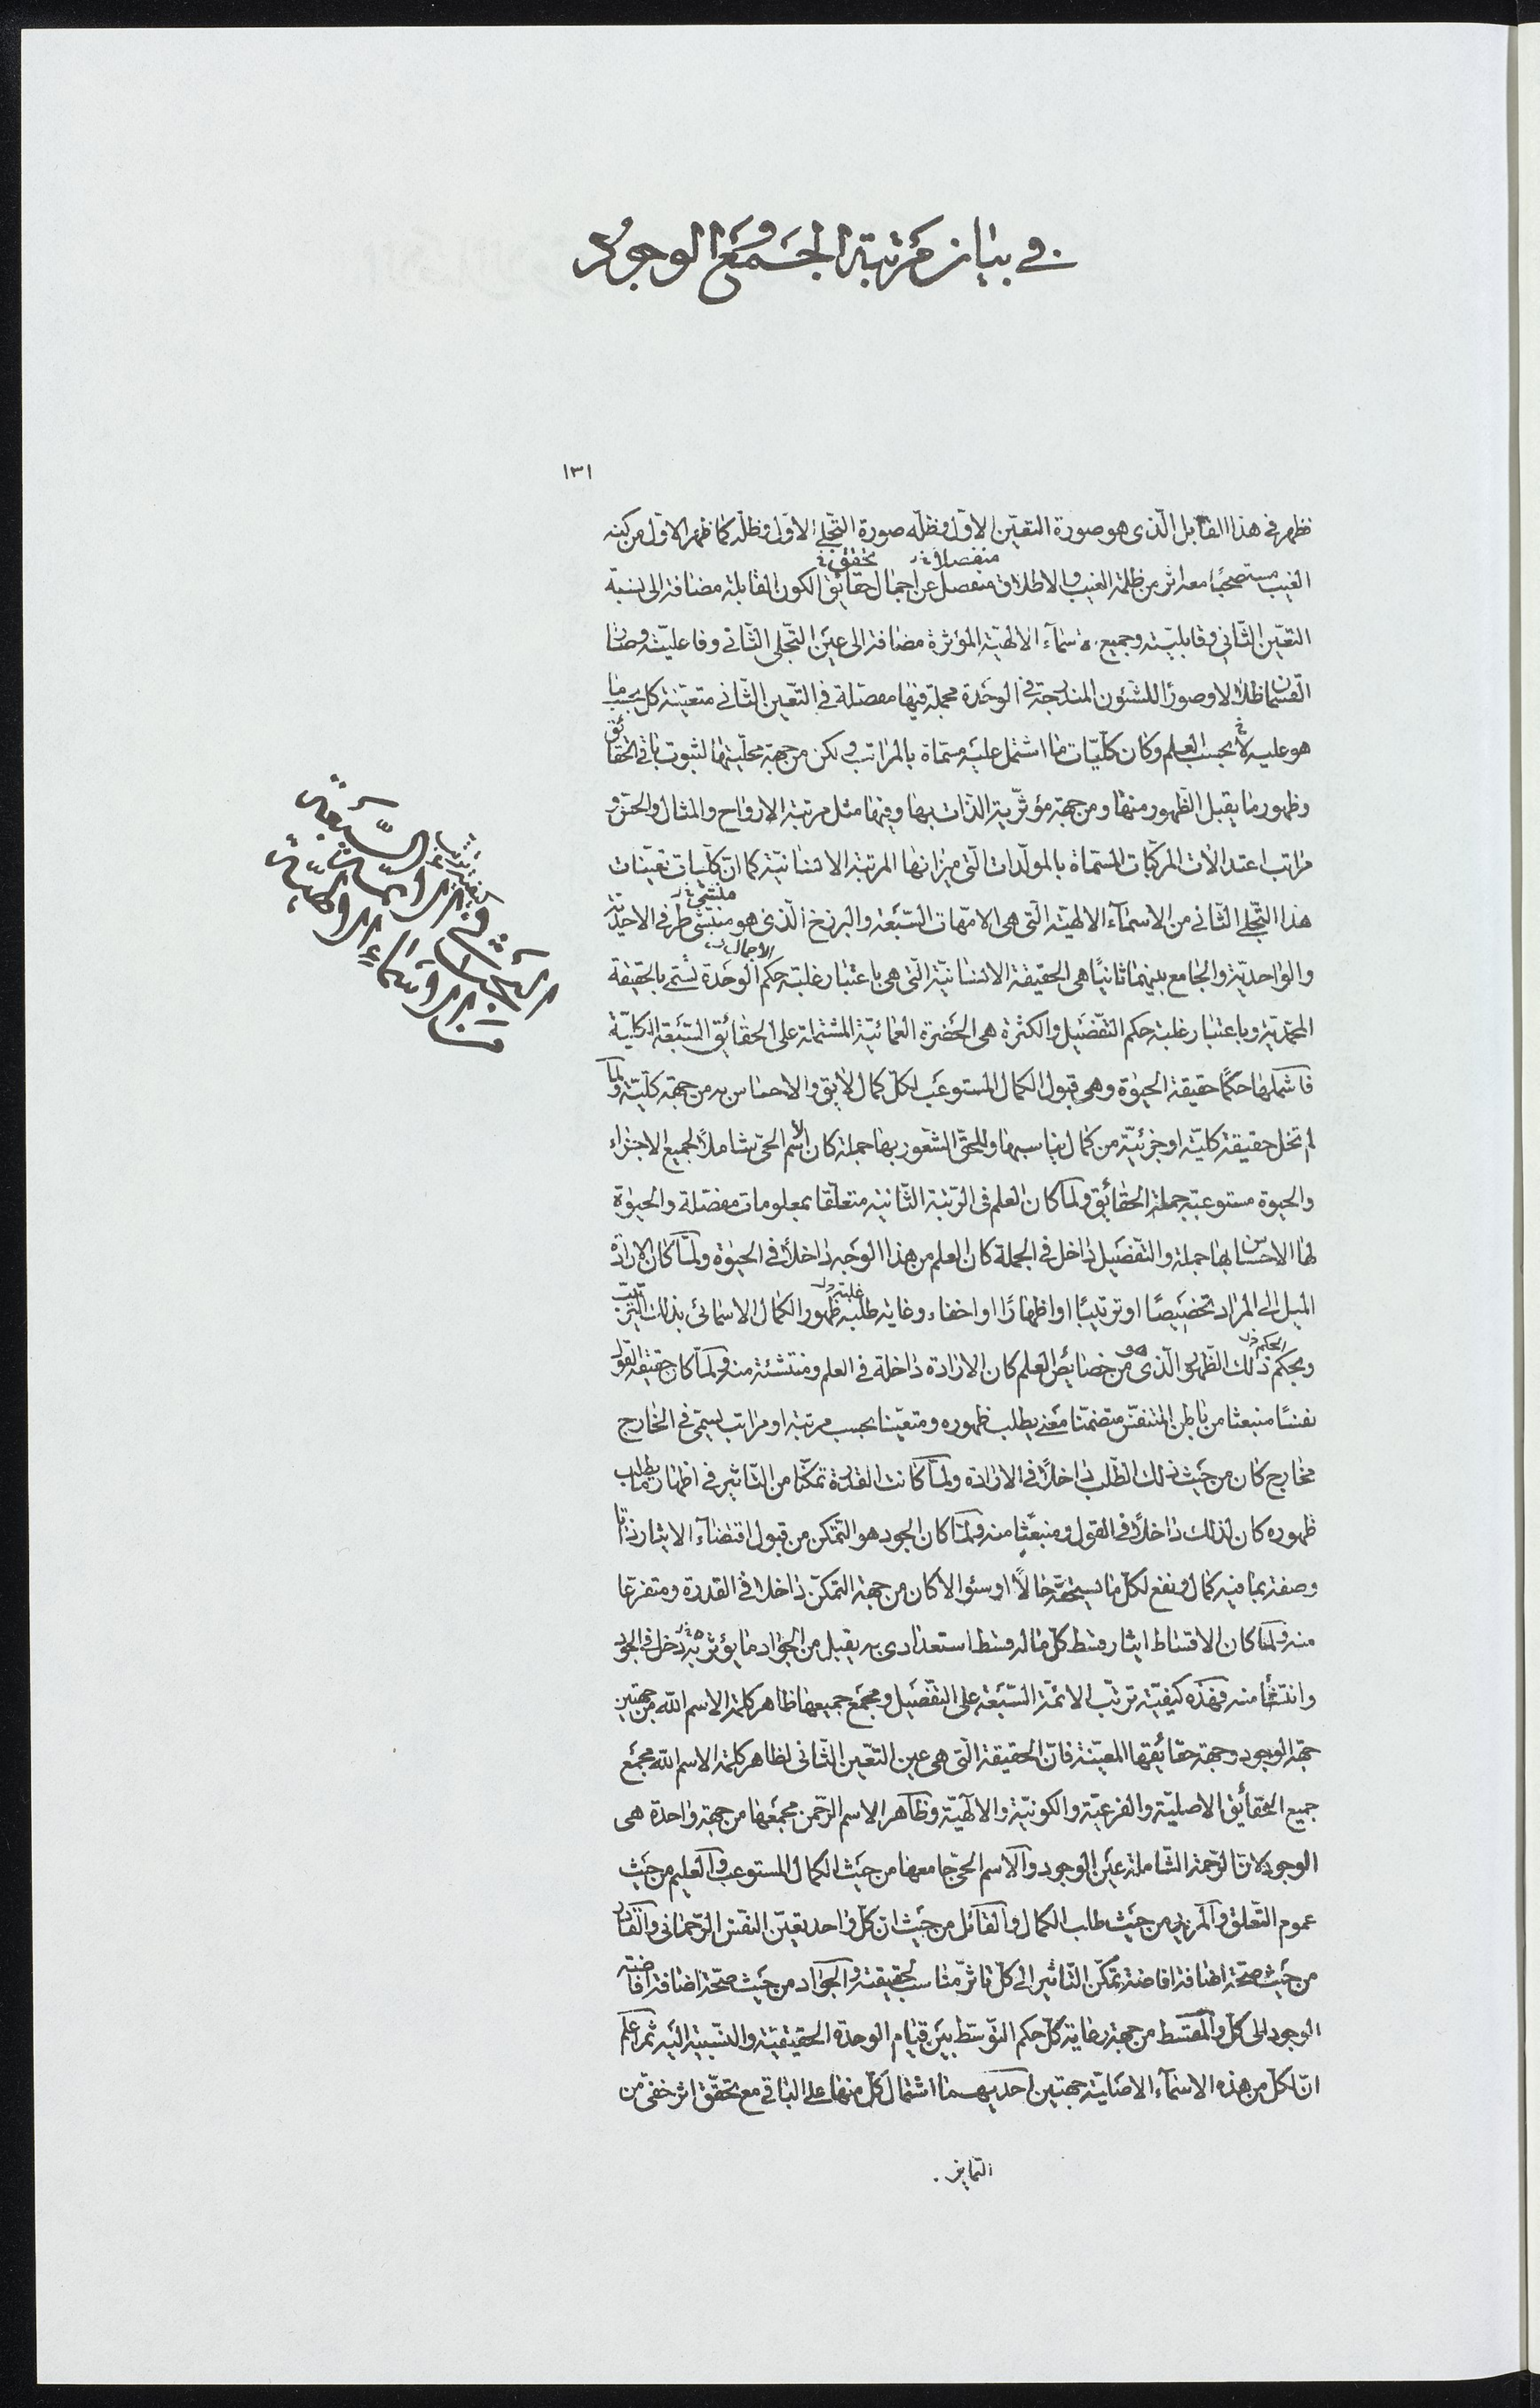 في بيان مرتبة الجمع و الوجود
١٣١
فظهر في هذا القابل الّذى هو صورة التعيّن الاوّل وظلّه صورة التجلّي الاوّل وظلّه كما ظهر الاوّل من كنه
منفصلا تحقق
الغيب مستصحبًا معه اثر من ظلمة الغيب والاطلاق منفصل عن اجمال حقائق الكون القابلة مضافة الى نسبة
التعيّن الثّاني وقابليّته وجميع الاسمآء الالهيّة المؤثرة مضافة الى عين التّجلّى الثّانى وفاعليّته وصارا
القسمان ظلالا وصورًا للشئون المندرجة في الوحدة مجملة فيها مفصّلة في التعيّن الثّانى متعيّنة كلّ بحسب ما
هو عليه لا بحسب العلم وكان كلّيّات ما اشتمل عليه مسمّاة بالمراتب ولكن من جهة محلّيتها لثبوت باقى الحقائق
وظهور ما يقبل الظّهور منها ومن جهة مؤثّرية الذّات بها وفيها مثل مرتبة الارواح والمثال والحسّ و
مراتب اعتدالات المركّبات المسمّاة بالمولّدات الّتى ميزانها المرتبة الانسانيّة كما انّ كلّيات تعيّنات
منشئ
هذا التّجلّي الثّانى من الاسمآء الالهيّة الّتى هى الامّهات السّبعة والبرزخ الّذى هو منشئ طرفى الاحديّة
الاجمال
والواحديّة والجامع بينهما ثانيًا هى الحقيقة الانسانيّة الّتى هى باعتبار غلبة حكم الوحدة تسمّى بالحقيقة
المحمّديّة وباعتبار غلبة حكم التّفصيل والكثرة هى الحضرة العمائيّة المشتملة على الحقائق السّبعة الكلّيّة
فاشملها حكمًا حقيقة الحيوة وهى قبول الكمال المستوعب لكلّ كمال لائق والاحساس به من جهة كلّيّة ولمّا
لم تخل حقيقة كليّة او جزئيّة من كمال يناسبها وللحىّ الشّعور بها جملة كان الاسم الحىّ شاملاً لجميع الاجزاء
والحيوة مستوعبة جملة الحقائق ولمّا كان العلم فى الرّتبة الثّانية متعلّقا بمعلومات مفصّلة والحيوة
لها الاحساس بها جملة والتّفصيل داخل فى الجملة كان العلم من هذا الوجه داخلاً فى الحيوة ولمّا كان الارادة
غلبة
الميل الى المراد تخصيصًا او ترتيبًا او اظهارًا او اخفاء وغاية طلبه ظهور الكمال الاسمائى بذلك الترتيب
الحكم
وبحكم ذلك الظّهور الّذى هو من خصايص العلم كان الارادة داخلة فى العلم ومنتشئة منه ولمّا كان حقيقة القول
نفسًا منبعثا من باطن المتنفّس متضمّنا معنى يطلب ظهوره ومتعيّنا بحسب مرتبة او مراتب يسمّى فى الخارج
مخارج كان من حيث ذلك الطّلب داخلاً فى الارادة ولمّا كانت القدرة تمكّنا من التّاثير فى اظهار ما يطلب
ظهوره كان لذلك داخلاً فى القول ومنبعثا منه ولمّا كان الجود هو التّمكّن من قبول اقتضاء الايثار ذاتا
وصفة بما فيه كمال ونفع لكلّ ما يستحقّه حالاً او سئوالا كان من جهة التمكّن داخلا فى القدرة ومتفرّعا
منه ولمّا كان الاقساط ايثار قسط كلّ ماله قسط استعدادى به يقبل من الجواد ما يؤثر به دخل فى الجود
وانتشأ منه فهذه كيفيّة ترتّب الائمّة السّبعة على التّفصيل ومجمع جميعها ظاهر كلمة الاسم اللّه من جهتين
جهة الوجود وجهة حقائقها المعيّنة فانّ الحقيقة الّتى هى عين التّعيّن الثّانى لظاهر كلمة الاسم اللّه مجمع
جميع الحقائق الاصليّة والفرعيّة والكونيّة والالهيّة وظاهر الاسم الرّحمن مجمعها من جهة واحدة هى
الوجود لانّ الرّحمة الشّاملة عين الوجود والاسم الحىّ جامعها من حيث الكمال المستوعب والعليم من حيث
عموم التّعلق والمريد من حيث طلب الكمال والقائل من حيث ان كلّ واحد تعيّن النفس الرّحمانى والقادر
من حيث صحّة اضافة افاضة تمكّن التّاثير الى كلّ تاثّر مناسب لحقيقته والجواد من حيث صحّة اضافة افاضة
الوجود الى كلّ والمقسط من جهة رعاية كلّ حكم التّوسّط بين قيام الوحدة الحقيقيّة والنسبيّة اليه ثمّ اعلم
انّ لكلّ من هذه الاسمآء الاصليّة جهتين احديهما اشتمال كلّ منها على الباقى مع تحقّق اثر خفىّ من
التمايز